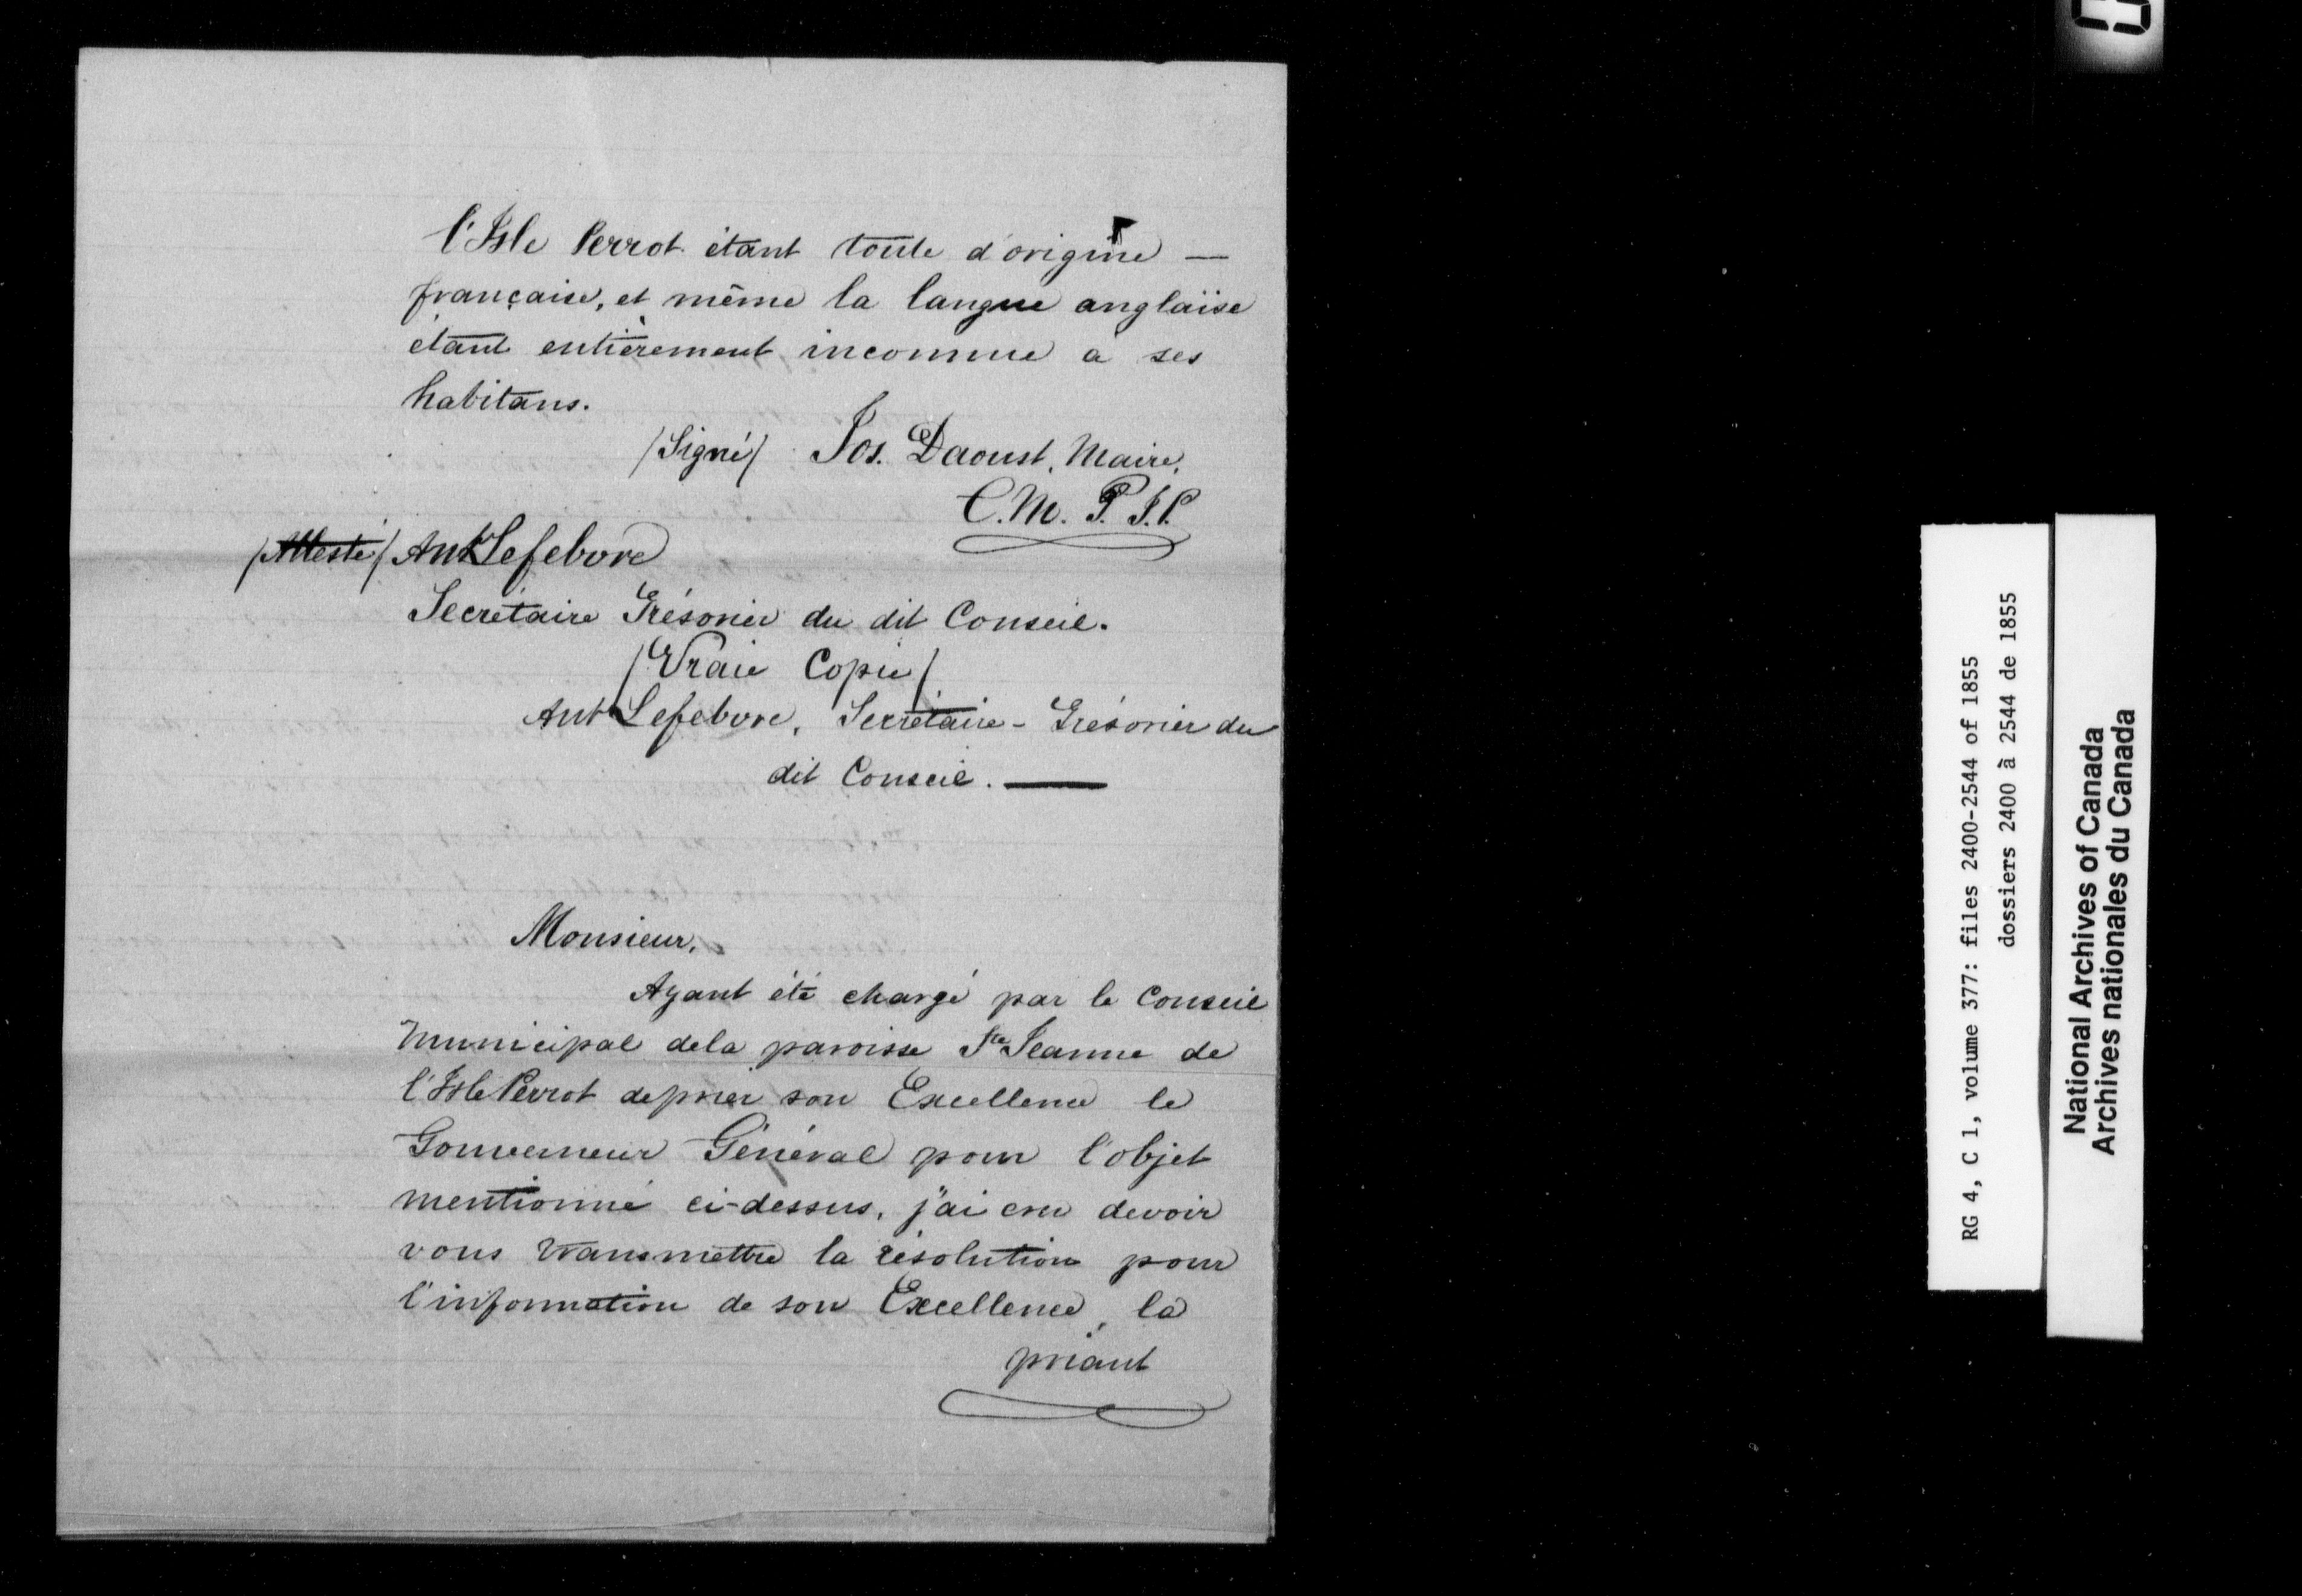 l'Isle Perrot étant toute d'origine —
française, et même la langue anglaise
étant entièrement inconnue à ses
habitans.
/Signé/ Jos. Daoust, Maire,
C.M. P. I.P.
/Attesté/ Ant Lefebvre
Secrétaire Trésorier du dit Conseil.
/Vraie Copie/
Ant Lefebvre, Secrétaire-Trésorier du
dit Conseil. —
Monsieur,
Ayant été chargé par le Conseil
Municipal de la paroisse Ste Jeanne de
l'Isle Perrot de prier son Excellence le
Gouverneur Général pour l'objet
mentionné ci-dessus, j'ai cru devoir
vous transmettre la résolution pour
l'information de son Excellence, la
priant
RG 4, C 1, volume 377: files 2400-2544 of 1855
dossiers 2400 à 2544 de 1855
National Archives of Canada
Archives nationales du Canada